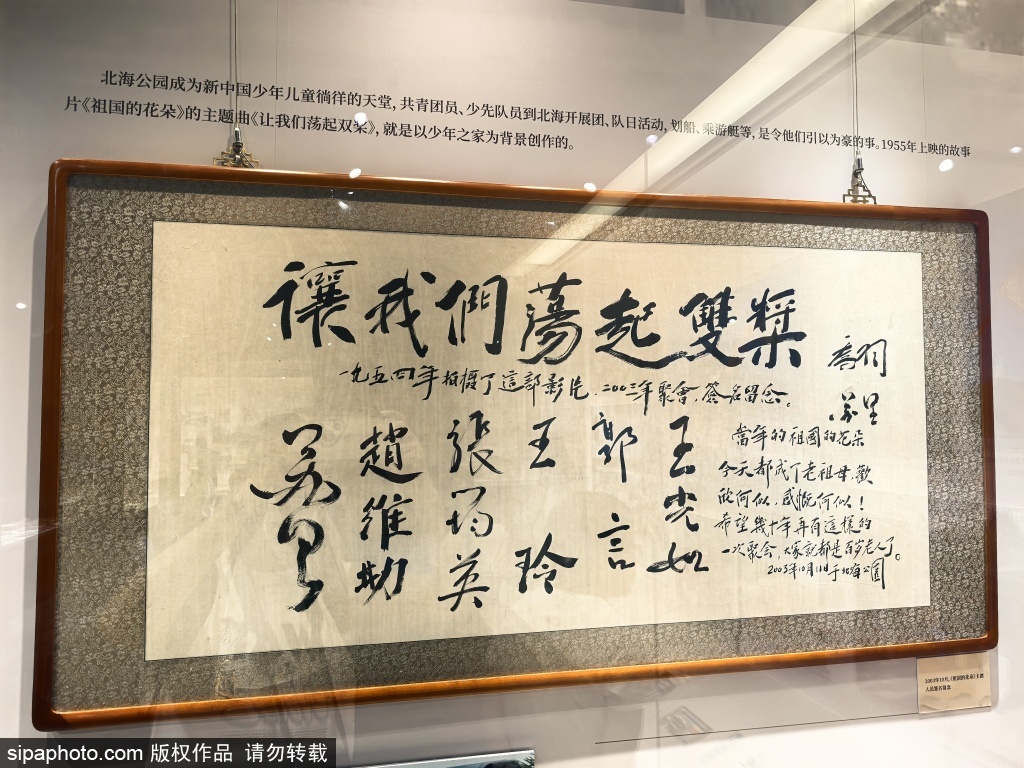 北海公园成为新中国少年儿童徜徉的天堂，共青团员、少先队员到北海开展团、队日活动，划船、乘游艇等，是令他们引以为豪的事。1955年上映的故事
片《祖国的花朵》的主题曲《让我们荡起双桨》，就是以少年之家为背景创作的。
讓我們蕩起雙槳
一九五四年拍攝了這部影片，二〇〇三年聚會，簽名留念。
喬羽
苏里
當年的祖國的花朵
今天都成了老祖母，歡
欣何似，感慨何似！
希望幾十年再有這樣的
一次聚会，大家就都是百岁老人了。
2003年10月11日于北海公園
王光如
郭言
王玲
張筠英
趙維勤
苏里
2003年10月，《祖国的花朵》主创
人员签名留念
sipaphoto.com 版权作品 请勿转载